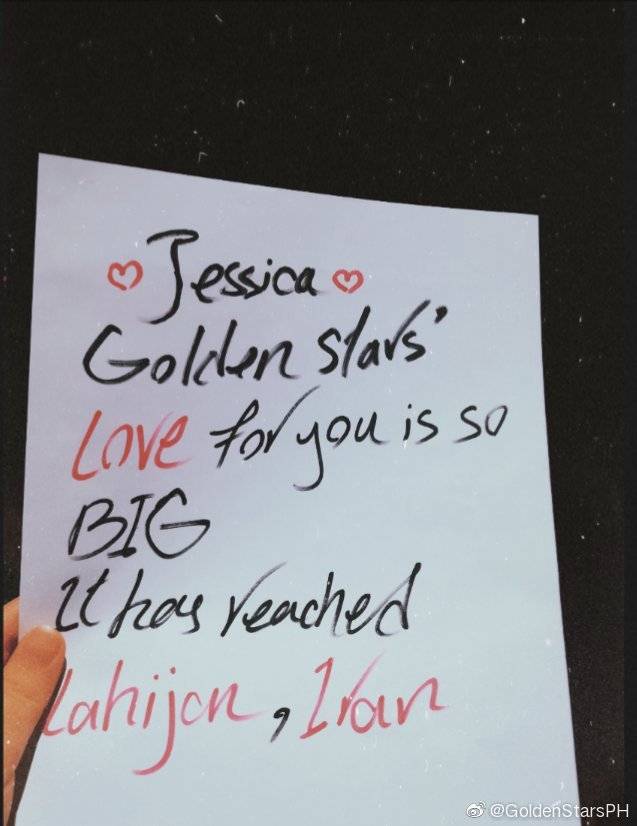 ♡ Jessica ♡
Golden Stars'
Love for you is so
BIG
It has reached
Lahijan, Iran
@GoldenStarsPH